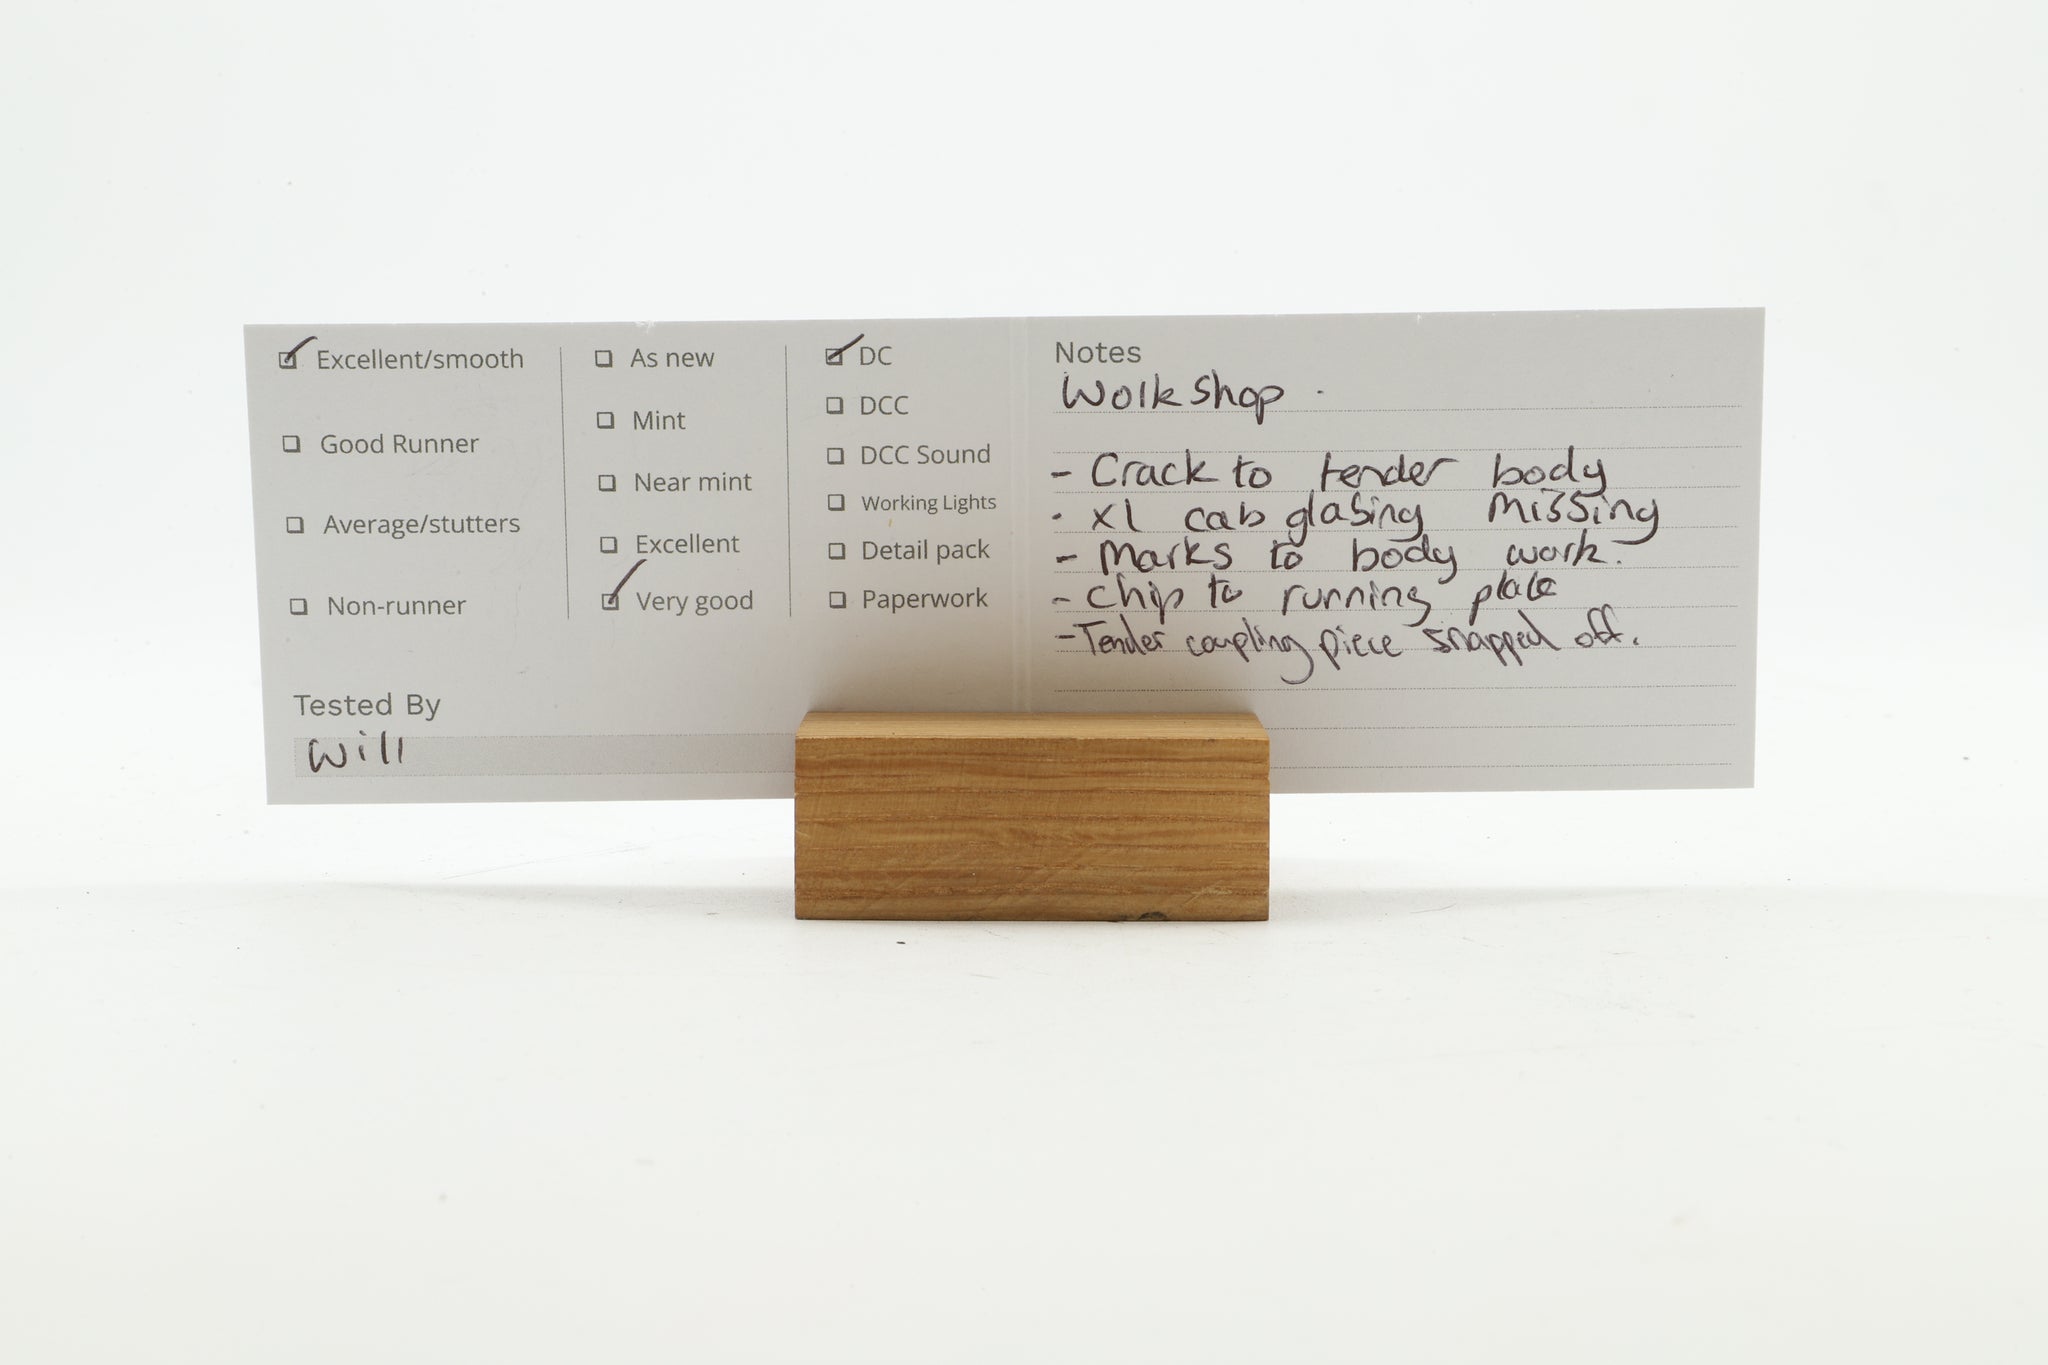 Excellent/smooth
Good Runner
Average/stutters
Non-runner
As new
Mint
Near mint
Excellent
Very good
DC
DCC
DCC Sound
Working Lights
Detail pack
Paperwork
Tested By
Will
Notes
Workshop .
- Crack to tender body
- x1 cab glasing missing
- Marks to body work.
- Chip to running plate
- Tender coupling piece snapped off.